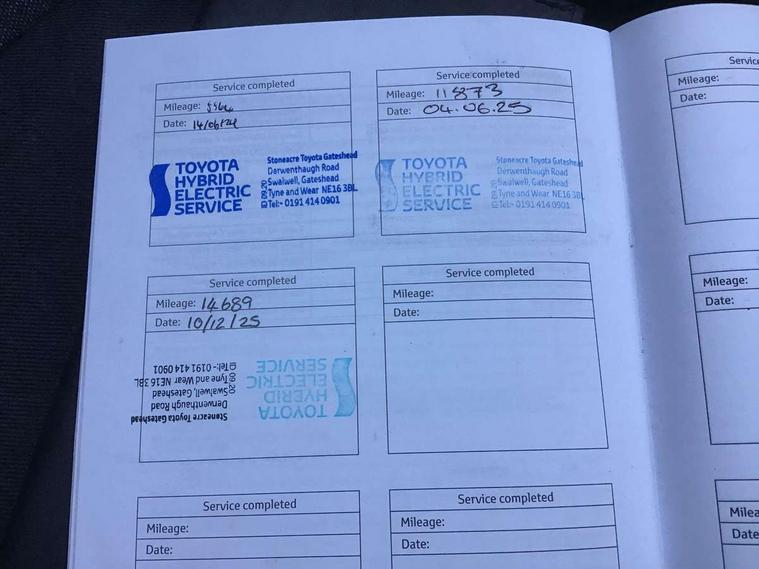 Service completed
Mileage:
Date: 14/06/24
TOYOTA
HYBRID
ELECTRIC
SERVICE
Stoneacre Toyota Gateshead
Derwenthaugh Road
Swalwell, Gateshead
Tyne and Wear NE16 3BL
Tel:- 0191 414 0901
Service completed
Mileage: 11873
Date: 04.06.25
TOYOTA
HYBRID
ELECTRIC
SERVICE
Stoneacre Toyota Gateshead
Derwenthaugh Road
Swalwell, Gateshead
Tyne and Wear NE16 3BL
Tel:- 0191 414 0901
Service completed
Mileage: 14689
Date: 10/12/25
TOYOTA
HYBRID
ELECTRIC
SERVICE
Stoneacre Toyota Gateshead
Derwenthaugh Road
Swalwell, Gateshead
Tyne and Wear NE16 3BL
Tel:- 0191 414 0901
Service completed
Mileage:
Date:
Service completed
Mileage:
Date:
Service completed
Mileage:
Date:
Service
Mileage:
Date:
Mileage:
Date:
Milea
Date